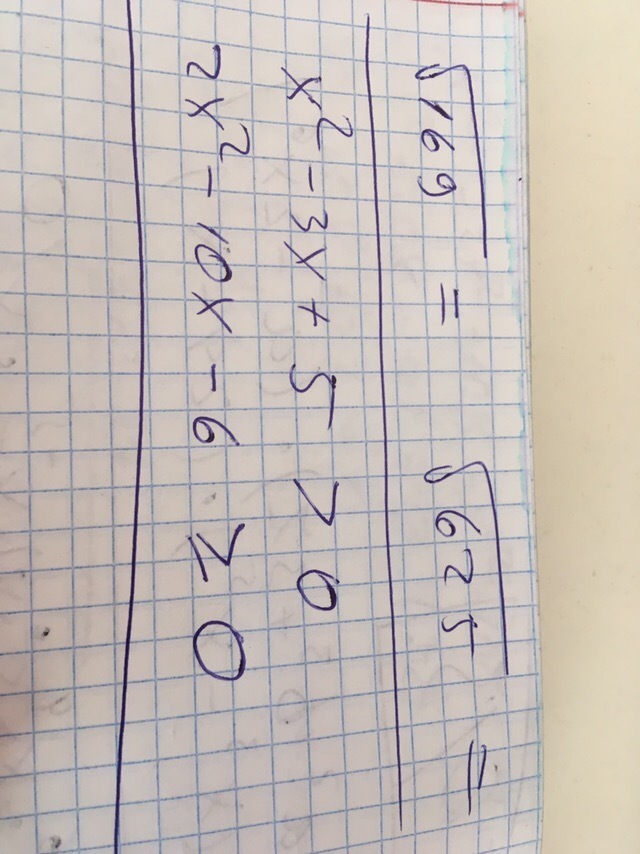 √169 = √625 =
x² - 3x + 5 > 0
2x² - 10x - 6 ≥ 0